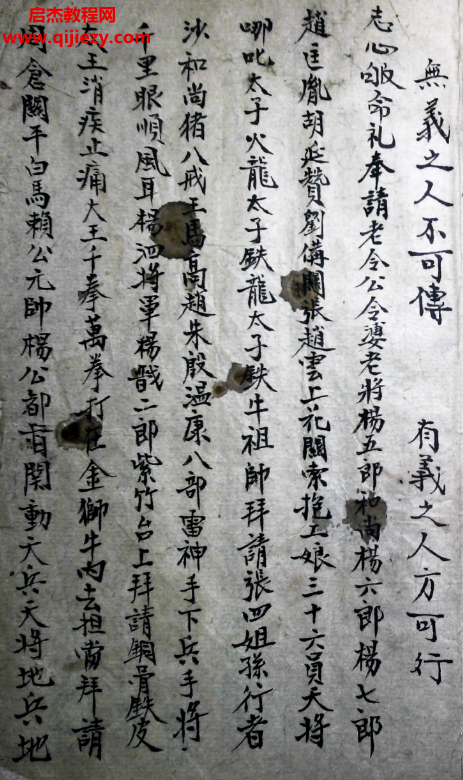 启杰教程网
www.qijiezy.com
無義之人不可傳 有義之人方可行
志心皈命礼奉請老令公令婆老將楊五郎和尚楊六郎楊七郎
趙匡胤胡延贊劉備關張趙雲上花關索抱工娘三十六員天將
哪叱太子火龍太子鉄龍太子鉄牛祖師拜請張四姐孫行者
沙和尚猪八戒王馬高趙朱殷温康八部雷神手下兵手將
千里眼順風耳楊泗將軍楊戩二郎紫竹台上拜請銅骨鉄皮
大王消疾止痛大王千拳萬拳打在金獅牛肉去担當拜請
倉關平白馬賴公元帥楊公都 関動天兵天將地兵地